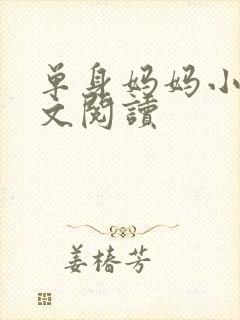 单身妈妈小
文阅讀
姜椿芳